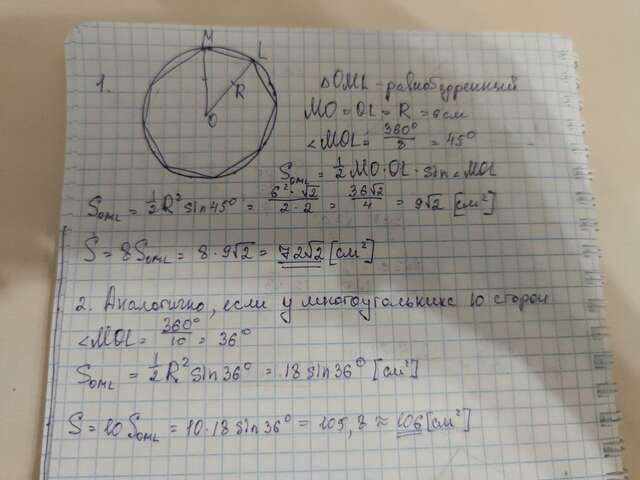 1.
M
L
R
O
△OML - равнобедренный
MO = OL = R = 6см
<MOL = 360°/8 = 45°
S_OML = 1/2 MO · OL · sin<MOL
S_OML = 1/2 R² sin 45° = 6²·√2 / 2·2 = 36√2/4 = 9√2 [см²]
S = 8S_OML = 8 · 9√2 = 72√2 [см²]
2. Аналогично, если у многоугольника 10 сторон
<MOL = 360°/10 = 36°
S_OML = 1/2 R² sin 36° = 18 sin 36° [см²]
S = 10 S_OML = 10 · 18 sin 36° = 105,8 ≈ 106 [см²]